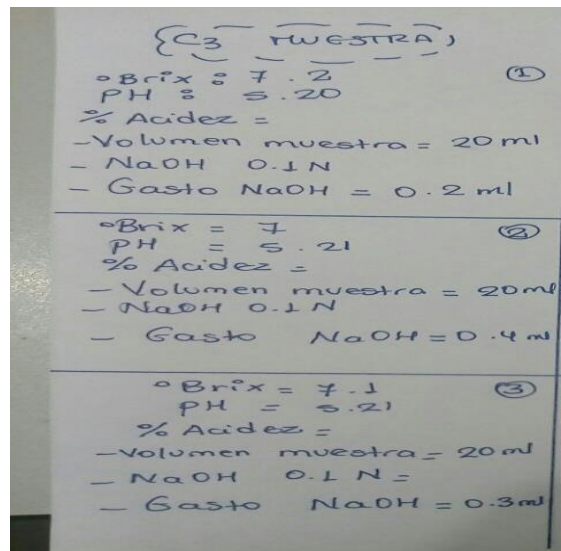 {C3 MUESTRA}
°Brix : 7.2 ①
PH : 5.20
% Acidez =
- Volumen muestra = 20 ml
- NaOH 0.1 N
- Gasto NaOH = 0.2 ml
°Brix = 7 ②
PH = 5.21
% Acidez =
- Volumen muestra = 20 ml
- NaOH 0.1 N
- Gasto NaOH = 0.4 ml
°Brix = 7.1 ③
PH = 5.21
% Acidez =
- Volumen muestra = 20 ml
- NaOH 0.1 N =
- Gasto NaOH = 0.3 ml